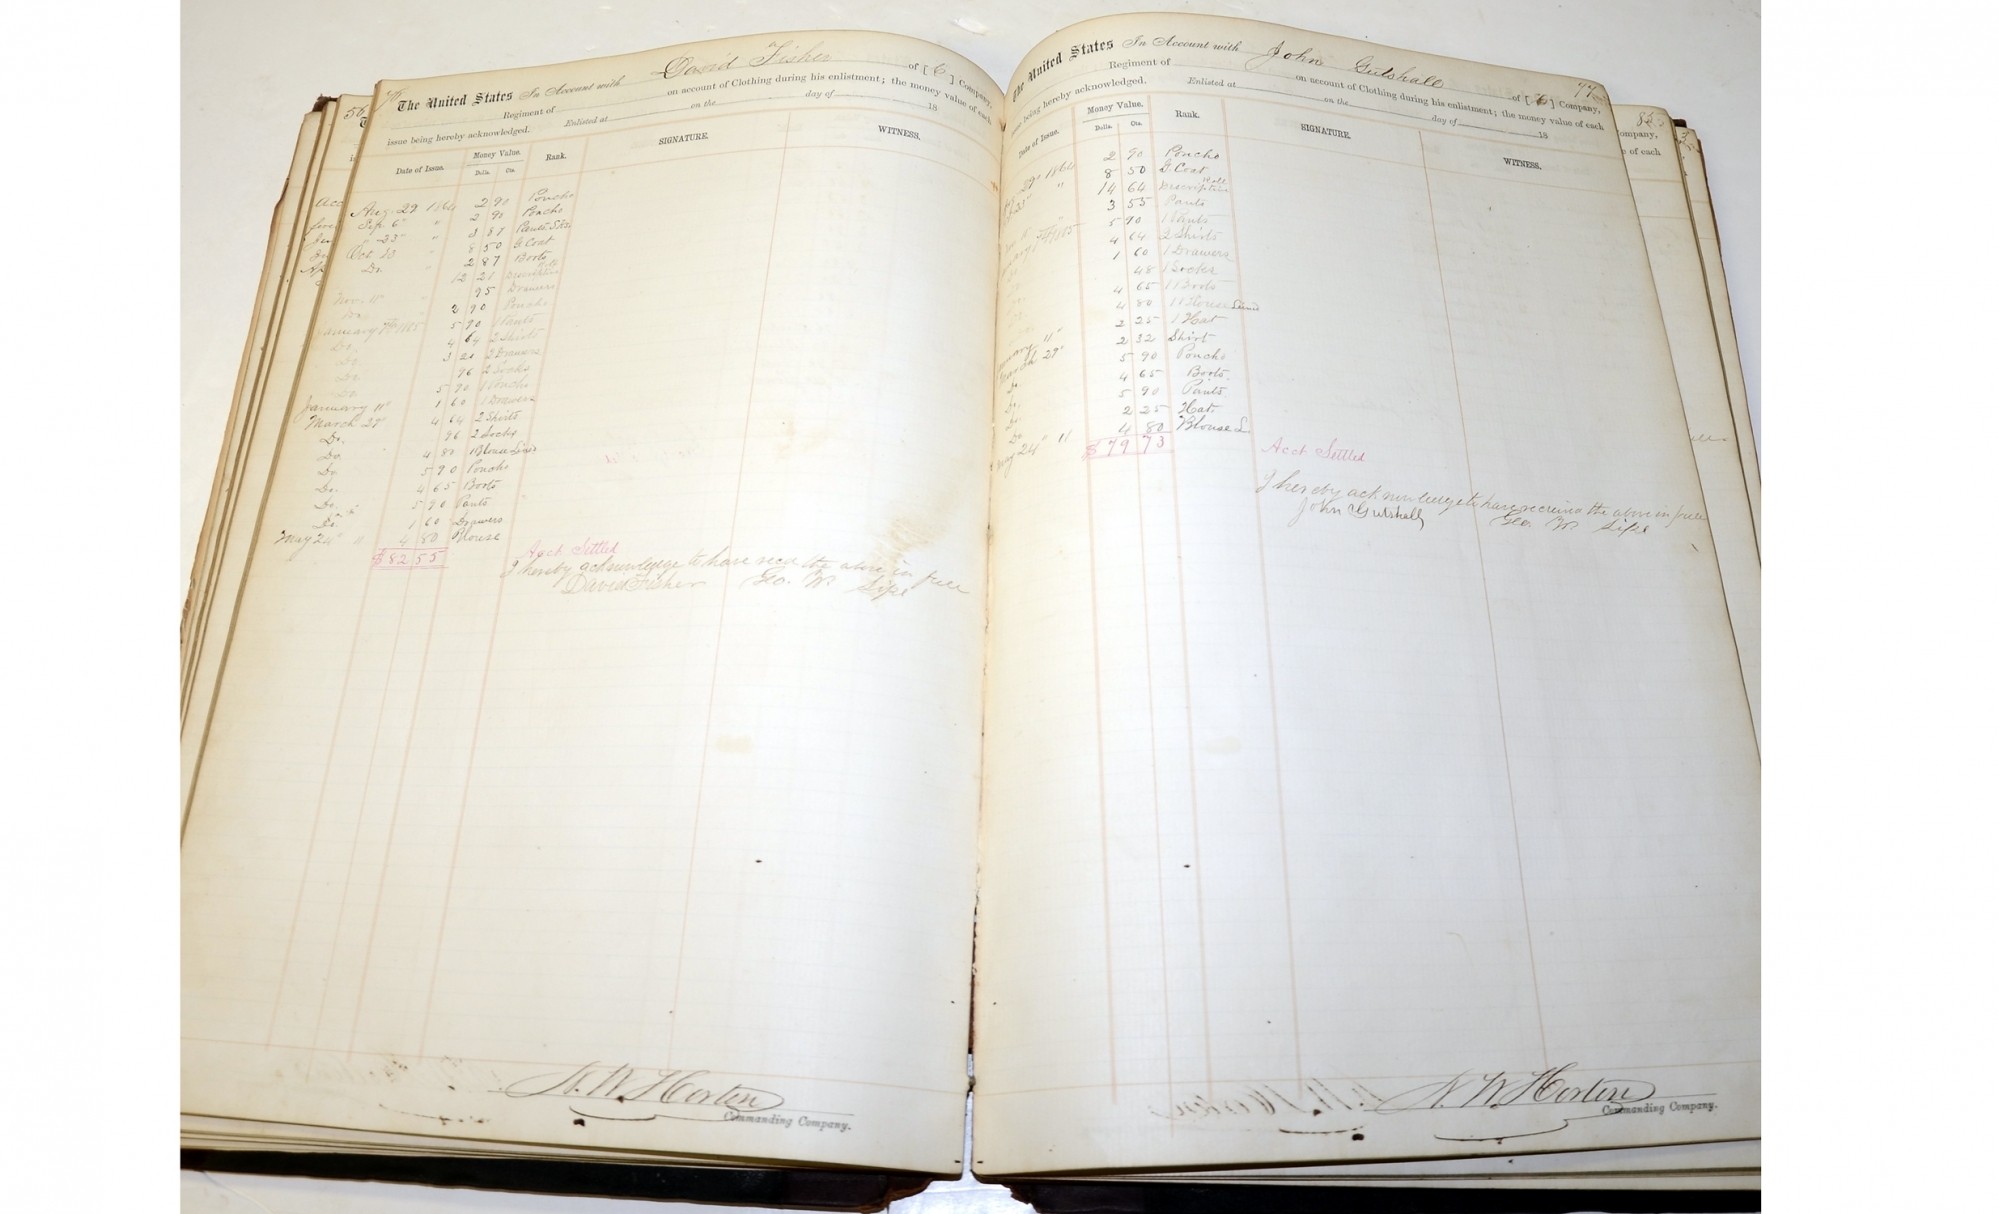 56
76
The United States In Account with David Fisher of [C] Company,
Regiment of on account of Clothing during his enlistment; the money value of each
issue being hereby acknowledged. Enlisted at on the day of 18
Date of Issue. Money Value. Rank. SIGNATURE. WITNESS.
Dolls. Cts.
Aug. 29 1864 2 90 Poncho
Sep. 6" " 2 90 Poncho
" 23" " 3 87 Pants
Oct 23 8 50 G. Coat
Do. " 2 87 Boots
12 21 Roll
Nov. 11 " 95 Drawers
Do. 2 90 Poncho
January 1865 5 90 1 Pants
Do. 4 64 2 Shirts
Do. 3 20 2 Drawers
Do. 96 2 Socks
Do 5 90 1 Poncho
January 11" 1 60 1 Drawers
March 27 4 64 2 Shirts
Do. 96 2 Socks
Do. 4 80 1 Blouse Lined
Do. 5 90 Poncho
Do. 4 65 Boots
Do. 5 90 Pants
Do. 1 60 Drawers
May 24" " 4 80 Blouse
$82 55 Acct Settled
I hereby acknowledge to have recd the above in full
David Fisher Geo. W. Sipe
N. W. Horton
Commanding Company.
77
The United States In Account with John Gutshall of [C] Company,
Regiment of on account of Clothing during his enlistment; the money value of each
issue being hereby acknowledged. Enlisted at on the day of 18
Date of Issue. Money Value. Rank. SIGNATURE. WITNESS.
Dolls. Cts.
29" 1864 2 90 Poncho
23" " 8 50 G. Coat
14 64 Descriptive Roll
3 55 Pants
5 90 1 Pants
1865 4 64 2 Shirts
1 60 1 Drawers
48 1 Socks
4 65 1 Boots
4 80 1 Blouse Lined
2 25 1 Hat
January 11" 2 32 Shirt
March 27" 5 90 Poncho
Do. 4 65 Boots
Do. 5 90 Pants
Do. 2 25 Hat
Do 4 80 Blouse
May 24" " $79 73
Acct Settled
I hereby acknowledge to have received the above in full
John Gutshall Geo. W. Sipe
N. W. Horton
Commanding Company.
Company,
of each